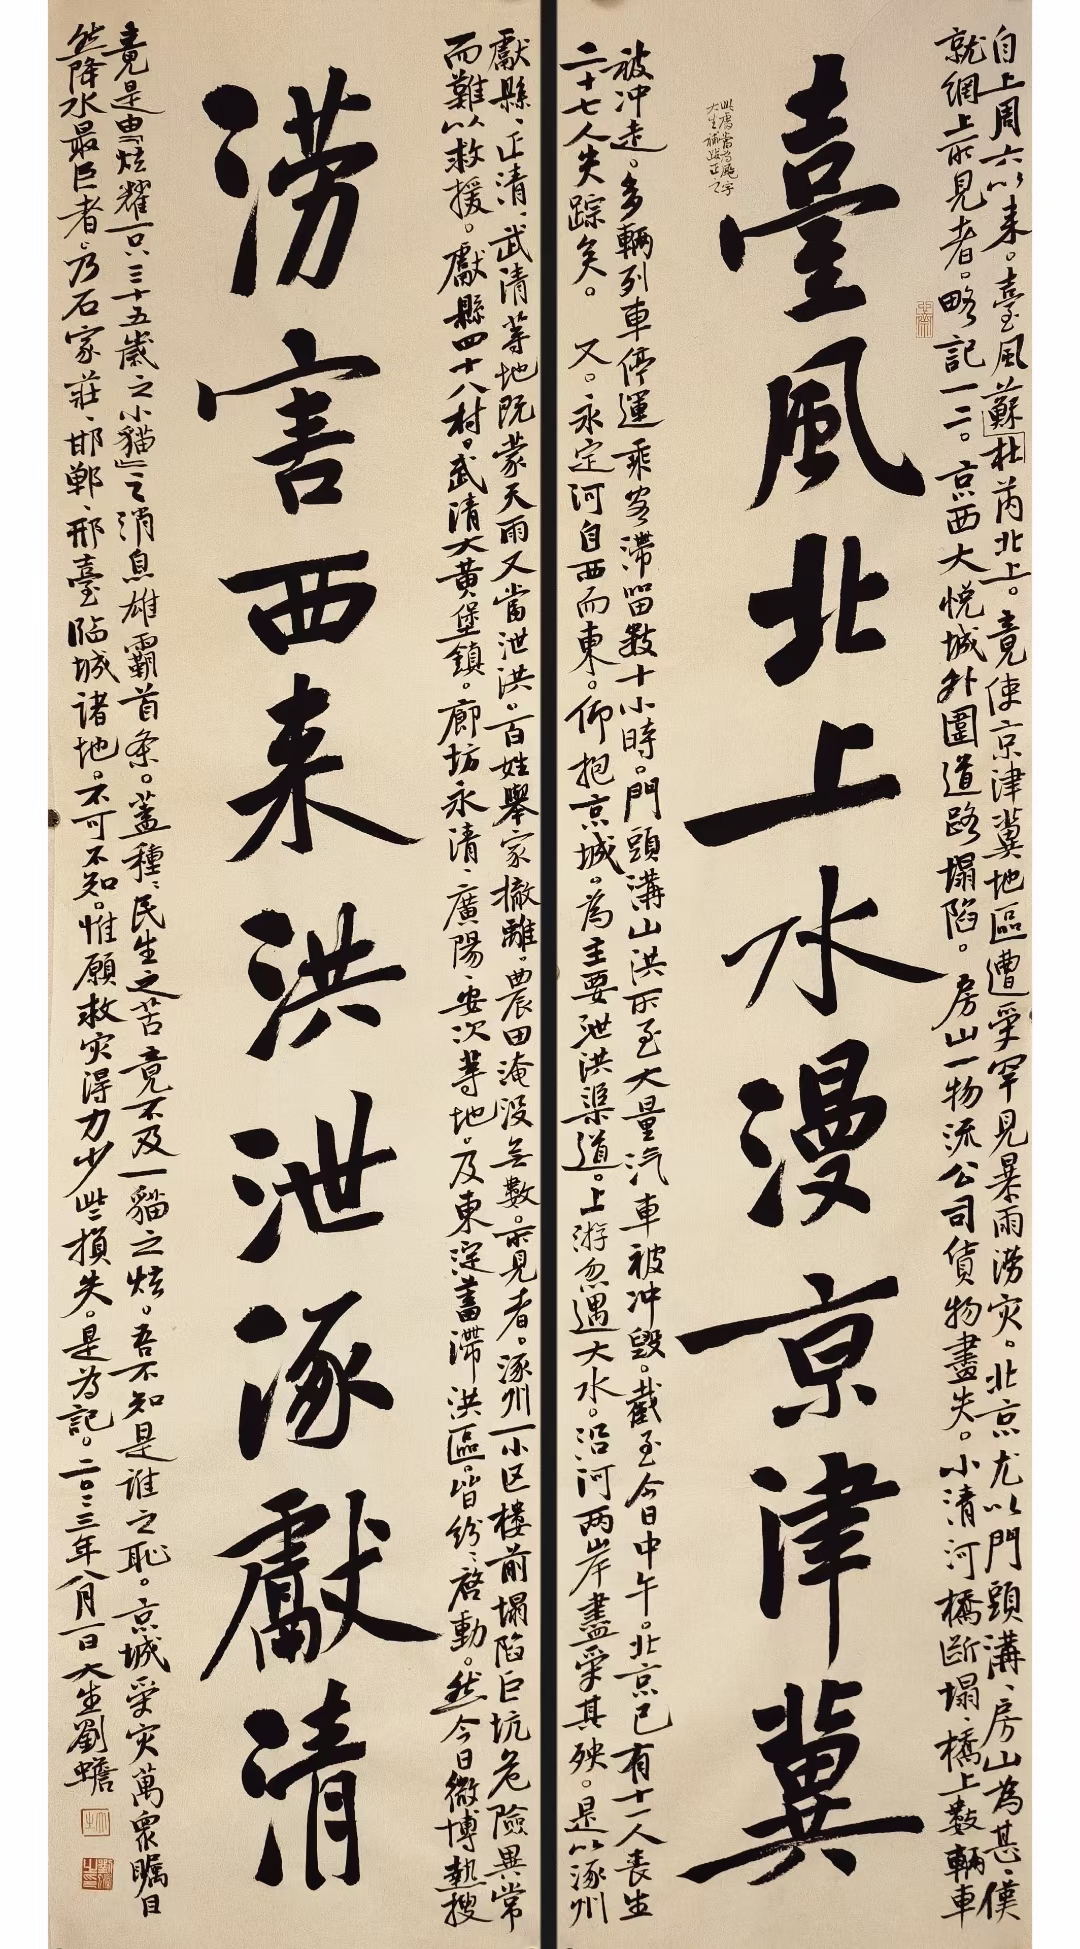 臺風北上水漫京津冀
自上周六以来。臺風蘇杜芮北上。竟使京津冀地區遭受罕見暴雨涝灾。北京尤以門頭溝、房山為甚、僅
就網上所見者。略記一二。京西大悦城外圍道路塌陷。房山一物流公司貨物盡失。小清河橋斷塌、橋上數輛車
此處當為颱字
大生補改正之
被冲走。多輛列車停運乘客滞留數十小時。門頭溝山洪所至大量汽車被冲毀。截至今日中午。北京已有十一人丧生
二十七人失踪矣。又。永定河自西而東。仰抱京城。為主要泄洪渠道。上游忽遇大水。沿河两岸盡受其殃。是以涿州
涝害西来洪泄涿獻清
獻縣、正清、武清等地既蒙天雨又當泄洪。百姓舉家撤離。農田淹没無數。所見者。涿州一小区樓前塌陷巨坑危險異常
而難以救援。獻縣四十八村。武清大黄堡鎮。廊坊永清、廣陽、安次等地。及東淀蓄滞洪區。皆紛紛啓動。然今日微博熱搜
竟是由「炫耀一只三十五歲之小貓」之消息雄霸首条。蓋種種民生之苦竟不及一貓之炫。吾不知是誰之恥。京城受灾萬衆矚目
然降水最巨者。乃石家莊、邯鄲、邢臺臨城诸地。不可不知。惟願救灾得力少些損失。是為記。二〇二三年八月一日大生劉蟾